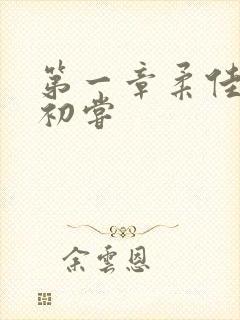 第一章柔佳
初嘗
余雲恩